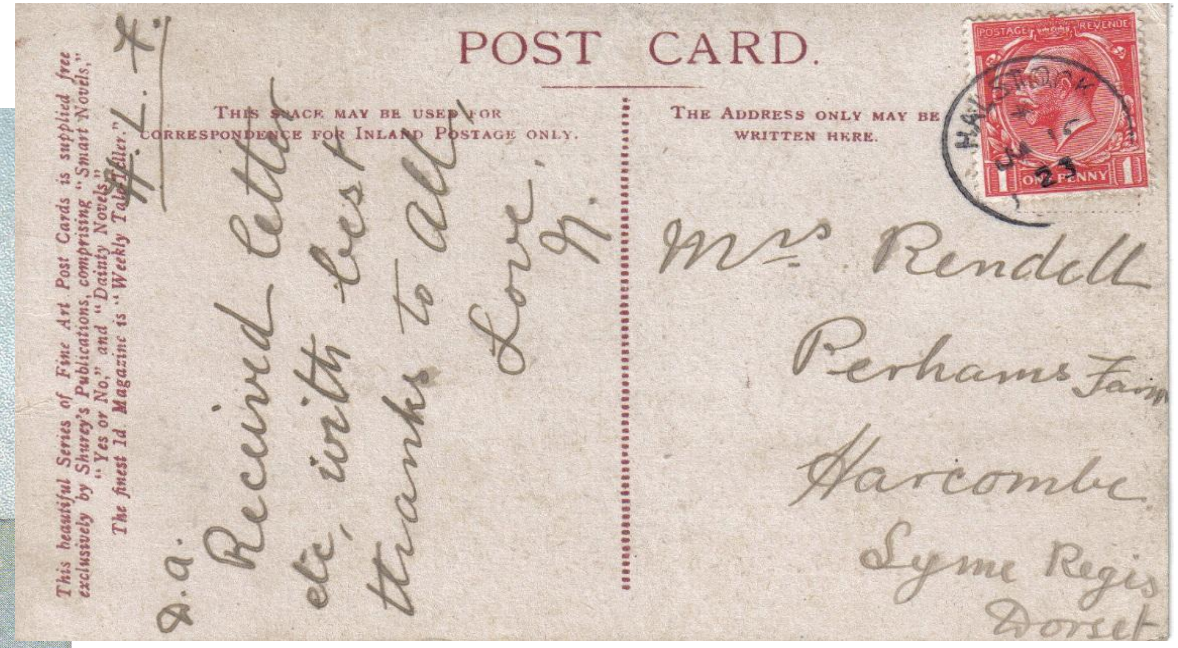 POST CARD.
THIS SPACE MAY BE USED FOR
CORRESPONDENCE FOR INLAND POSTAGE ONLY.
THE ADDRESS ONLY MAY BE
WRITTEN HERE.
This beautiful Series of Fine Art Post Cards is supplied free
exclusively by Shurey's Publications, comprising "Smart Novels,"
"Yes or No," and "Dainty Novels."
The finest 1d. Magazine is "Weekly Tale-Teller."
D. A.
Received letter
etc, with best
thanks to All.
Love.
POSTAGE REVENUE
1 ONE PENNY 1
HALSTOCK
23
Mrs Rendell
Perhams Farm
Harcombe
Lyme Regis
Dorset.